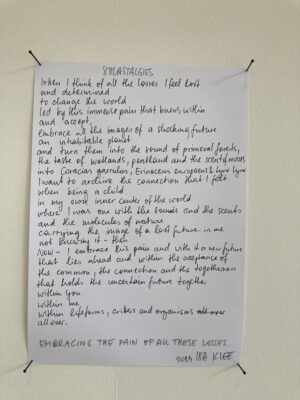 SOLASTALGIES
When I think of all the losses I feel lost
and determined
to change the world
led by this immense pain that burns within
and accept,
embrace all the images of a shocking future
an inhabitable planet
and turn them into the sound of primeval forests,
the taste of wetlands, peatland and the scent of mosses
into Coracias garrulus, Erinaceus europaeus & lynx lynx
I want to archive the connection that I felt
when being a child
in my own inner center of the world
where I was one with the sounds and the scents
and the molecules of nature
carrying the image of a lost future in me
not knowing it - then
Now - I embrace this pain and with it a new future
that lies ahead and within the acceptance of
the common, the connection and the togetherness
that holds the uncertain future together
within you
within me,
within lifeforms, and organisms
all over.
EMBRACING THE PAIN OF ALL THESE LOSSES.
ISA KLEE